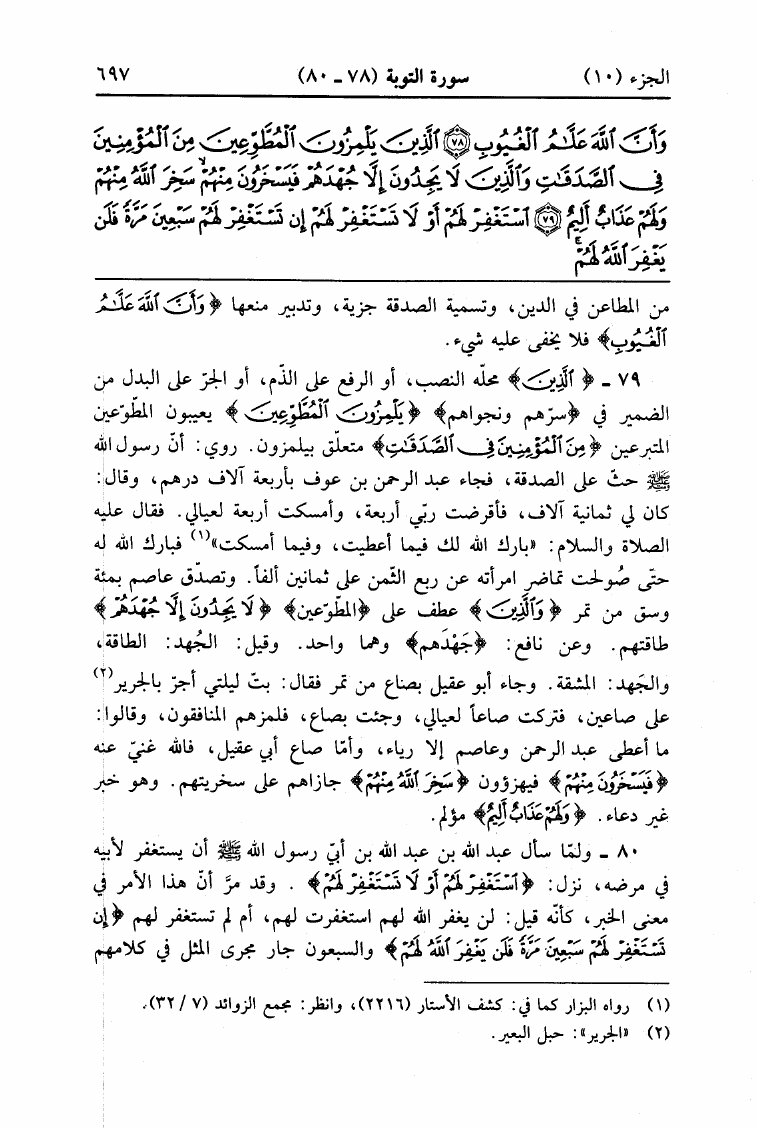 الجزء (١٠) سورة التوبة (٧٨ ـ ٨٠) ٦٩٧
وَأَنَّ ٱللَّهَ عَلَّٰمُ ٱلْغُيُوبِ ﴿٧٨﴾ ٱلَّذِينَ يَلْمِزُونَ ٱلْمُطَّوِّعِينَ مِنَ ٱلْمُؤْمِنِينَ
فِى ٱلصَّدَقَٰتِ وَٱلَّذِينَ لَا يَجِدُونَ إِلَّا جُهْدَهُمْ فَيَسْخَرُونَ مِنْهُمْ ۙ سَخِرَ ٱللَّهُ مِنْهُمْ
وَلَهُمْ عَذَابٌ أَلِيمٌ ﴿٧٩﴾ ٱسْتَغْفِرْ لَهُمْ أَوْ لَا تَسْتَغْفِرْ لَهُمْ إِن تَسْتَغْفِرْ لَهُمْ سَبْعِينَ مَرَّةً فَلَن
يَغْفِرَ ٱللَّهُ لَهُمْ ۚ
من المطاعن في الدين، وتسمية الصدقة جزية، وتدبير منعها ﴿وَأَنَّ ٱللَّهَ عَلَّٰمُ
ٱلْغُيُوبِ﴾ فلا يخفى عليه شيء.
٧٩ ـ ﴿ٱلَّذِينَ﴾ محلّه النصب، أو الرفع على الذّم، أو الجرّ على البدل من
الضمير في ﴿سرّهم ونجواهم﴾ ﴿يَلْمِزُونَ ٱلْمُطَّوِّعِينَ﴾ يعيبون المطّوّعين
المتبرعين ﴿مِنَ ٱلْمُؤْمِنِينَ فِى ٱلصَّدَقَٰتِ﴾ متعلّق بيلمزون. روي: أنّ رسول الله
ﷺ حثّ على الصدقة، فجاء عبد الرحمن بن عوف بأربعة آلاف درهم، وقال:
كان لي ثمانية آلاف، فأقرضت ربّي أربعة، وأمسكت أربعة لعيالي. فقال عليه
الصلاة والسلام: «بارك الله لك فيما أعطيت، وفيما أمسكت»(١) فبارك الله له
حتّى صُولحت تماضر امرأته عن ربع الثّمن على ثمانين ألفاً. وتصدّق عاصم بمئة
وسق من تمر ﴿وَٱلَّذِينَ﴾ عطف على ﴿المطّوّعين﴾ ﴿لَا يَجِدُونَ إِلَّا جُهْدَهُمْ﴾
طاقتهم. وعن نافع: ﴿جَهْدَهم﴾ وهما واحد. وقيل: الجُهد: الطاقة،
والجَهد: المشقة. وجاء أبو عقيل بصاع من تمر فقال: بتّ ليلتي أجرّ بالجرير(٢)
على صاعين، فتركت صاعاً لعيالي، وجئت بصاع، فلمزهم المنافقون، وقالوا:
ما أعطى عبد الرحمن وعاصم إلا رياء، وأمّا صاع أبي عقيل، فالله غنيّ عنه
﴿فَيَسْخَرُونَ مِنْهُمْ﴾ فيهزؤون ﴿سَخِرَ ٱللَّهُ مِنْهُمْ﴾ جازاهم على سخريتهم. وهو خبر
غير دعاء. ﴿وَلَهُمْ عَذَابٌ أَلِيمٌ﴾ مؤلم.
٨٠ ـ ولمّا سأل عبد الله بن عبد الله بن أبيّ رسول الله ﷺ أن يستغفر لأبيه
في مرضه، نزل: ﴿ٱسْتَغْفِرْ لَهُمْ أَوْ لَا تَسْتَغْفِرْ لَهُمْ﴾. وقد مرَّ أنّ هذا الأمر في
معنى الخبر، كأنّه قيل: لن يغفر الله لهم استغفرت لهم، أم لم تستغفر لهم ﴿إِن
تَسْتَغْفِرْ لَهُمْ سَبْعِينَ مَرَّةً فَلَن يَغْفِرَ ٱللَّهُ لَهُمْ﴾ والسبعون جار مجرى المثل في كلامهم
(١) رواه البزار كما في: كشف الأستار (٢٢١٦)، وانظر: مجمع الزوائد (٧/ ٣٢).
(٢) «الجرير»: حبل البعير.